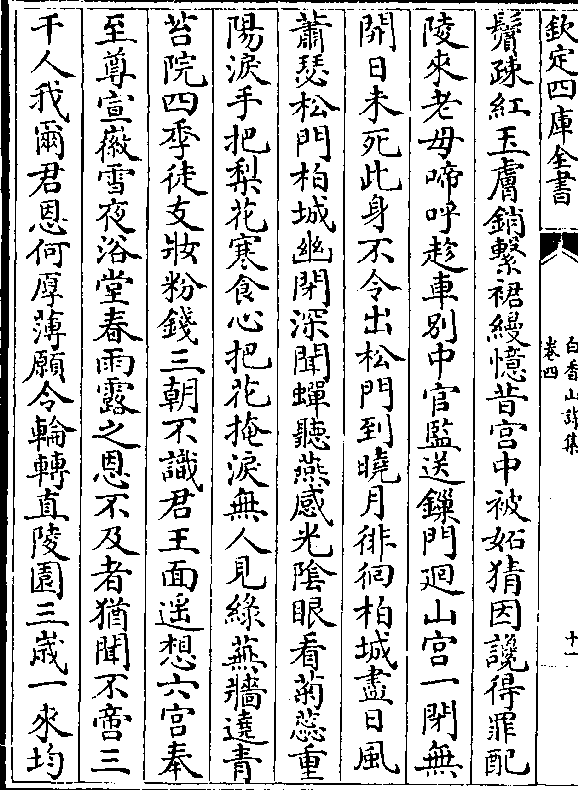 欽定四庫全書
白香山詩集
卷四
十一
鬢踈紅玉膚銷繫裙縵憶昔宫中被妬猜因讒得罪配
陵來老母啼呼趂車别中官監送鏁門迴山宫一閉無
開日未死此身不令出松門到曉月徘徊柏城盡日風
蕭瑟松門柏城幽閉深聞蟬聽燕感光陰眼看菊蕊重
陽淚手把梨花寒食心把花掩淚無人見緑蕪牆遶青
苔院四季徒支妝粉錢三朝不識君王面遥想六宫奉
至尊宣徽雪夜浴堂春雨露之恩不及者猶聞不啻三
千人我爾君恩何厚薄願令輪轉直陵園三歲一來均